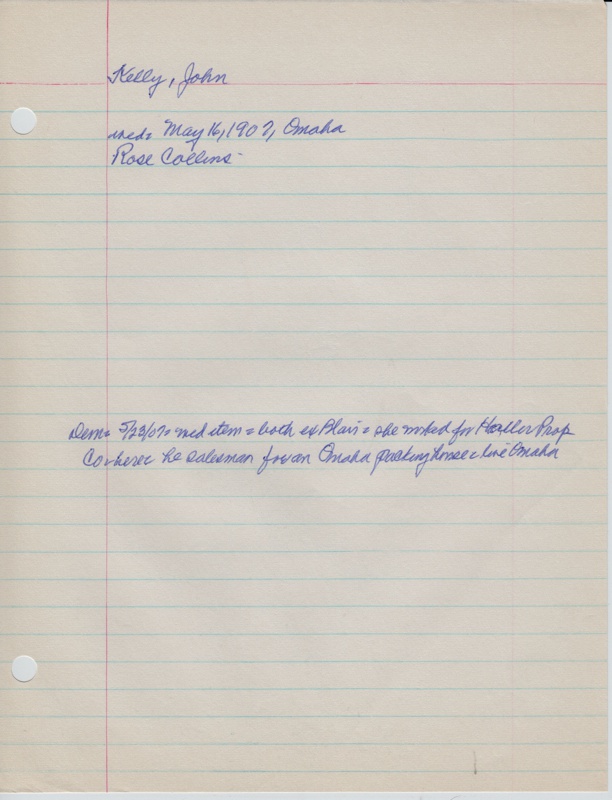 Kelly, John
wed= May 16, 1907, Omaha
Rose Collins-
Dem= 5/23/07= wed item= both of Blair= she worked for Haller Prop
Co here= he salesman for an Omaha packing house= live Omaha